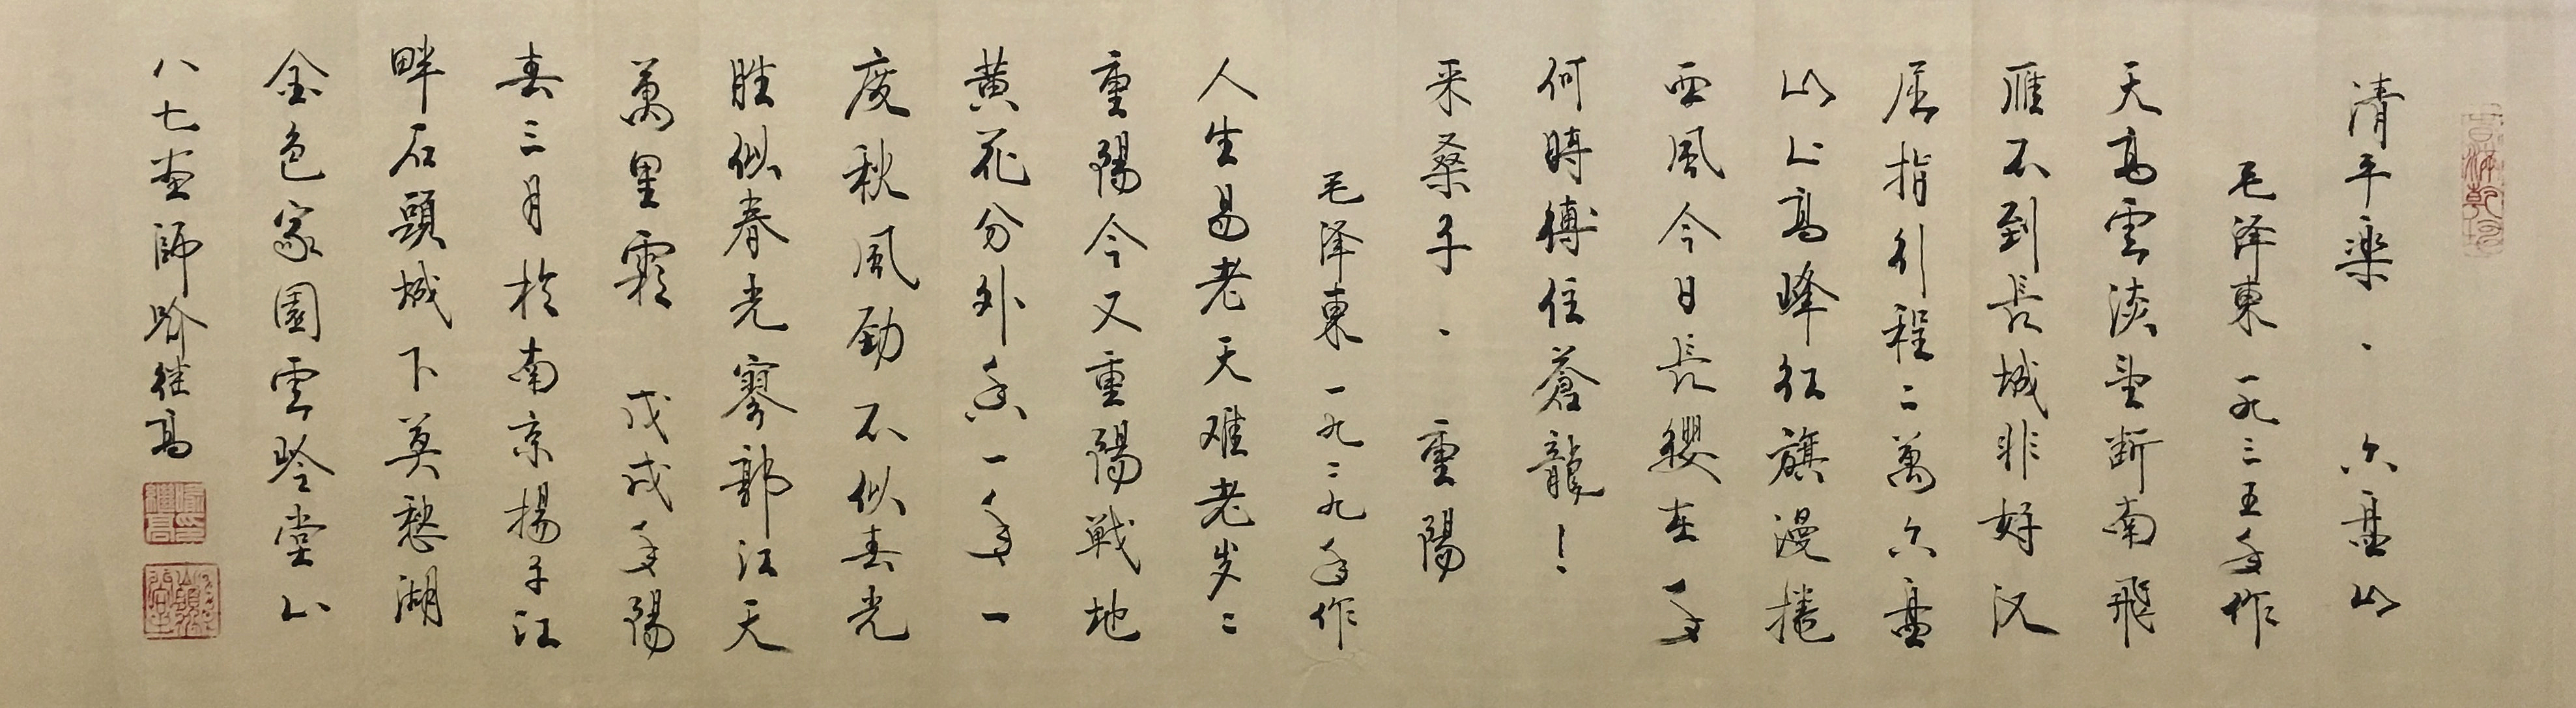 清平楽·六盘山
毛泽東一九三五年作
天高雲淡望断南飛
雁不到長城非好汉
屈指行程二萬六盘
山上高峰红旗漫捲
西風今日長纓在手
何時縛住蒼龍！
采桑子·重陽
毛泽東一九二九年作
人生易老天难老岁二
重陽今又重陽戦地
黄花分外香一年一
度秋風勁不似春光
胜似春光寥郭江天
萬里霜 戊戌年陽
春三月於南京揚子江
畔石頭城下莫愁湖
金色家園雲岭堂上
八七叟師喻继高